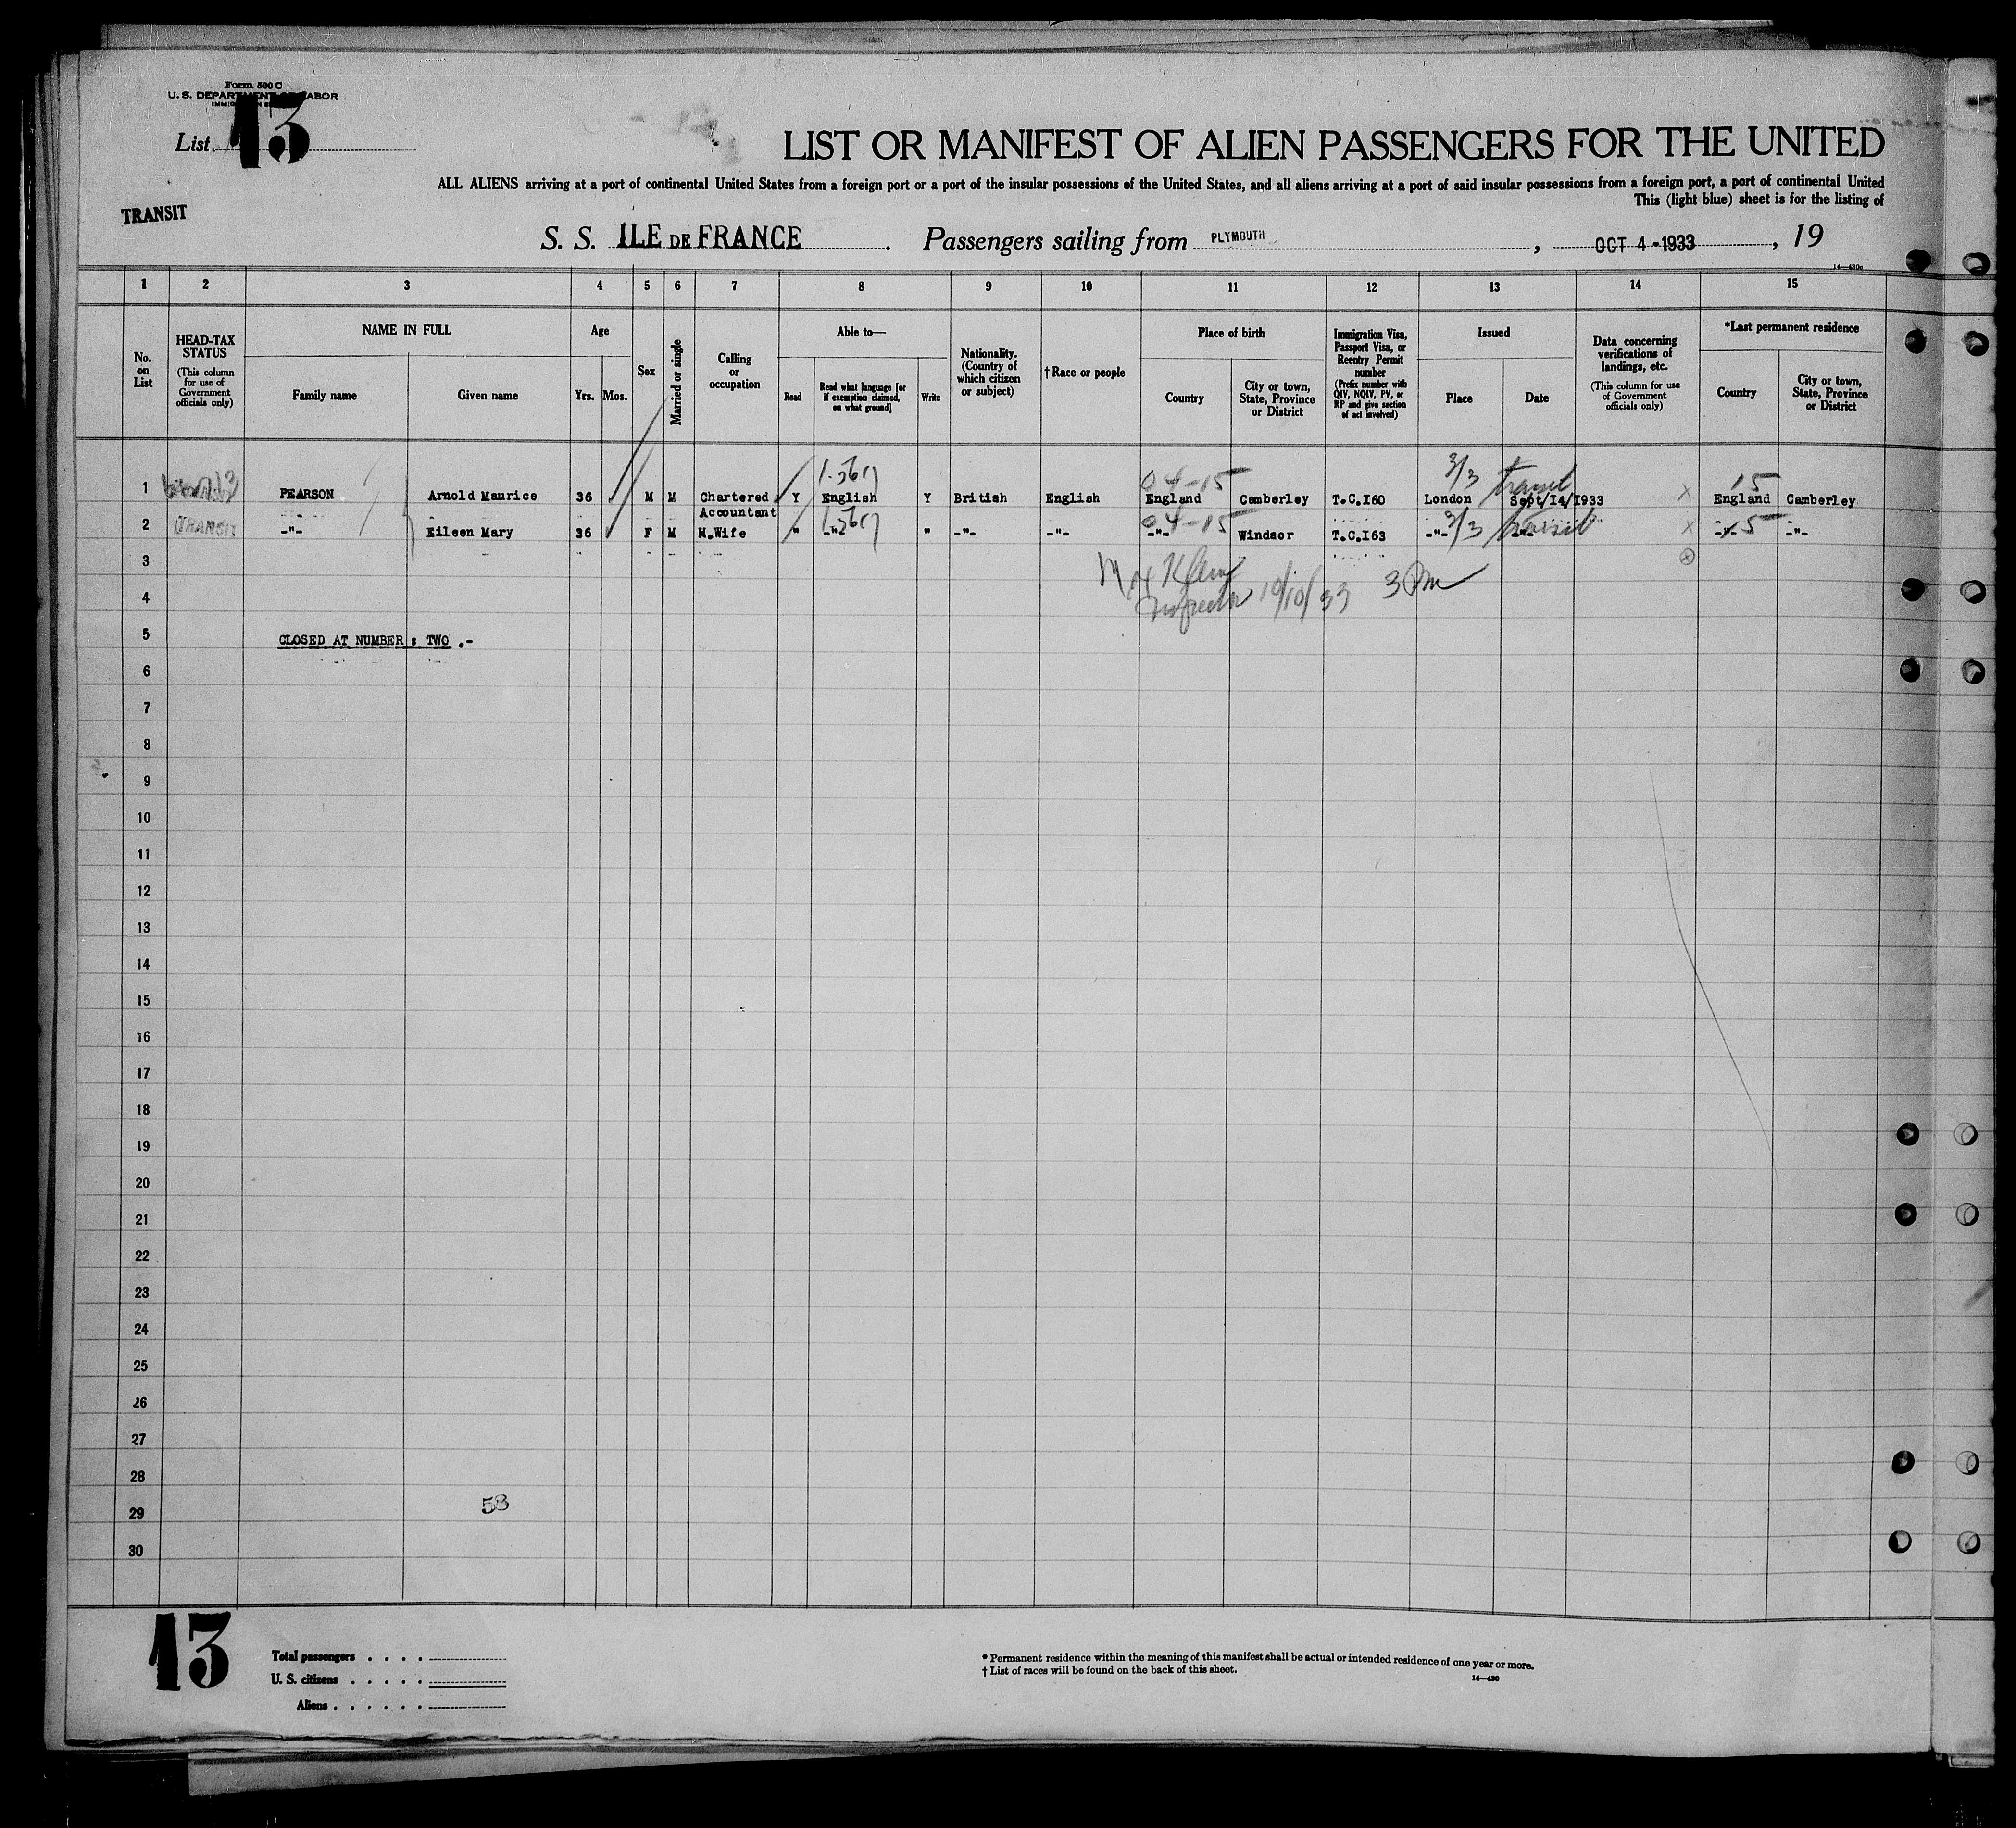 Form 500 C
U. S. DEPARTMENT OF LABOR
List 13
LIST OR MANIFEST OF ALIEN PASSENGERS FOR THE UNITED
ALL ALIENS arriving at a port of continental United States from a foreign port or a port of the insular possessions of the United States, and all aliens arriving at a port of said insular possessions from a foreign port, a port of continental United
This (light blue) sheet is for the listing of
TRANSIT
S. S. ILE DE FRANCE. Passengers sailing from PLYMOUTH, OCT 4-1933, 19
14—430c
1 2 3 4 5 6 7 8 9 10 11 12 13 14 15
No. on List
HEAD-TAX STATUS (This column for use of Government officials only)
NAME IN FULL
Family name
Given name
Age
Yrs. Mos.
Sex
Married or single
Calling or occupation
Able to—
Read
Read what language [or if exemption claimed, on what ground]
Write
Nationality. (Country of which citizen or subject)
†Race or people
Place of birth
Country
City or town, State, Province or District
Immigration Visa, Passport Visa, or Reentry Permit number (Prefix number with QIV, NQIV, PV, or RP and give section of act involved)
Issued
Place
Date
Data concerning verifications of landings, etc. (This column for use of Government officials only)
*Last permanent residence
Country
City or town, State, Province or District
04-15 3/3 transit 15
1 PEARSON Arnold Maurice 36 M M Chartered Accountant Y English Y British English England Camberley T.C.I60 London Sept/I4/I933 x England Camberley
04-15 3/3 transit 15
2 TRANSIT -"- Eileen Mary 36 F M H.Wife " -"- " -"- -"- -"- Windsor T.C.I63 -"- -"- x -"- -"-
3
10/10/33 3 PM
4
5 CLOSED AT NUMBER : TWO .-
6
7
8
9
10
11
12
13
14
15
16
17
18
19
20
21
22
23
24
25
26
27
28
53
29
30
13
Total passengers . . . .
U. S. citizens . . . . .
Aliens . . . . . .
* Permanent residence within the meaning of this manifest shall be actual or intended residence of one year or more.
† List of races will be found on the back of this sheet.
14—430